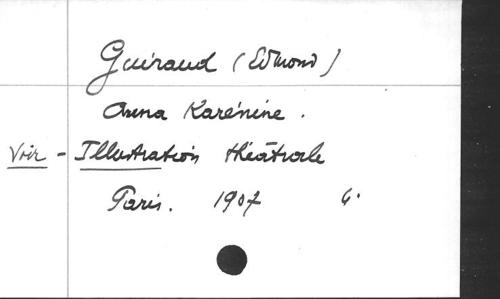 Guiraud (Edmond)
Anna Karénine.
Voir - Illustration théâtrale
Paris. 1907 4°